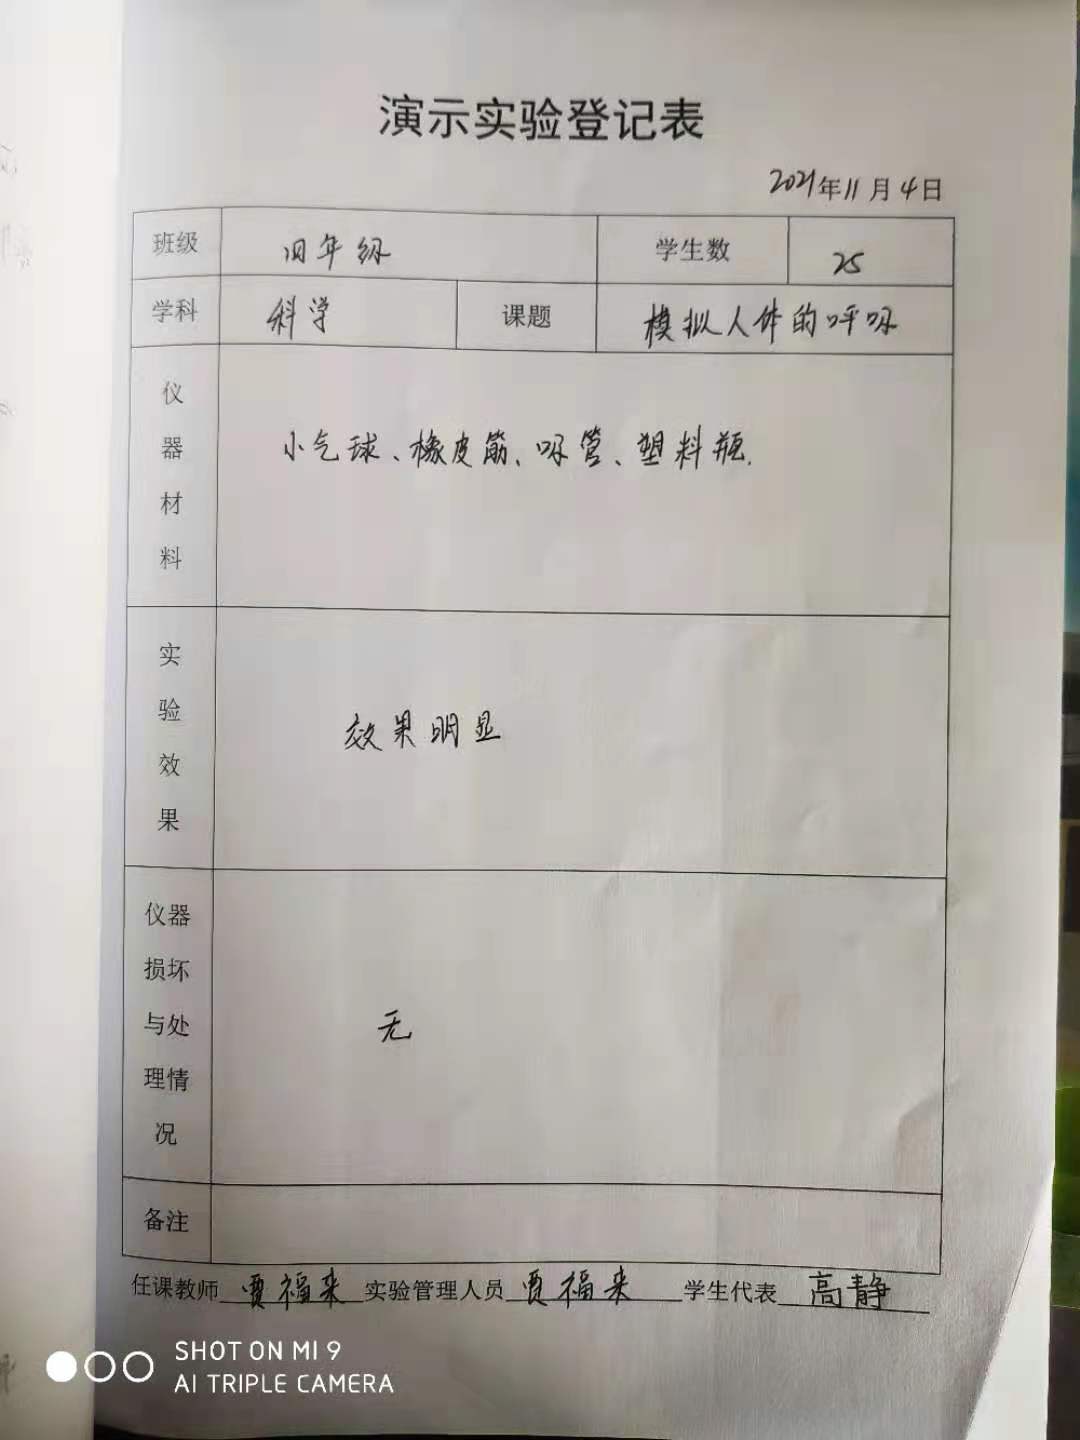 演示实验登记表
2021年11月4日
班级 四年级 学生数 25
学科 科学 课题 模拟人体的呼吸
仪器材料 小气球、橡皮筋、吸管、塑料瓶.
实验效果 效果明显
仪器损坏与处理情况 无
备注
任课教师 贾福来 实验管理人员 贾福来 学生代表 高静
SHOT ON MI 9
AI TRIPLE CAMERA